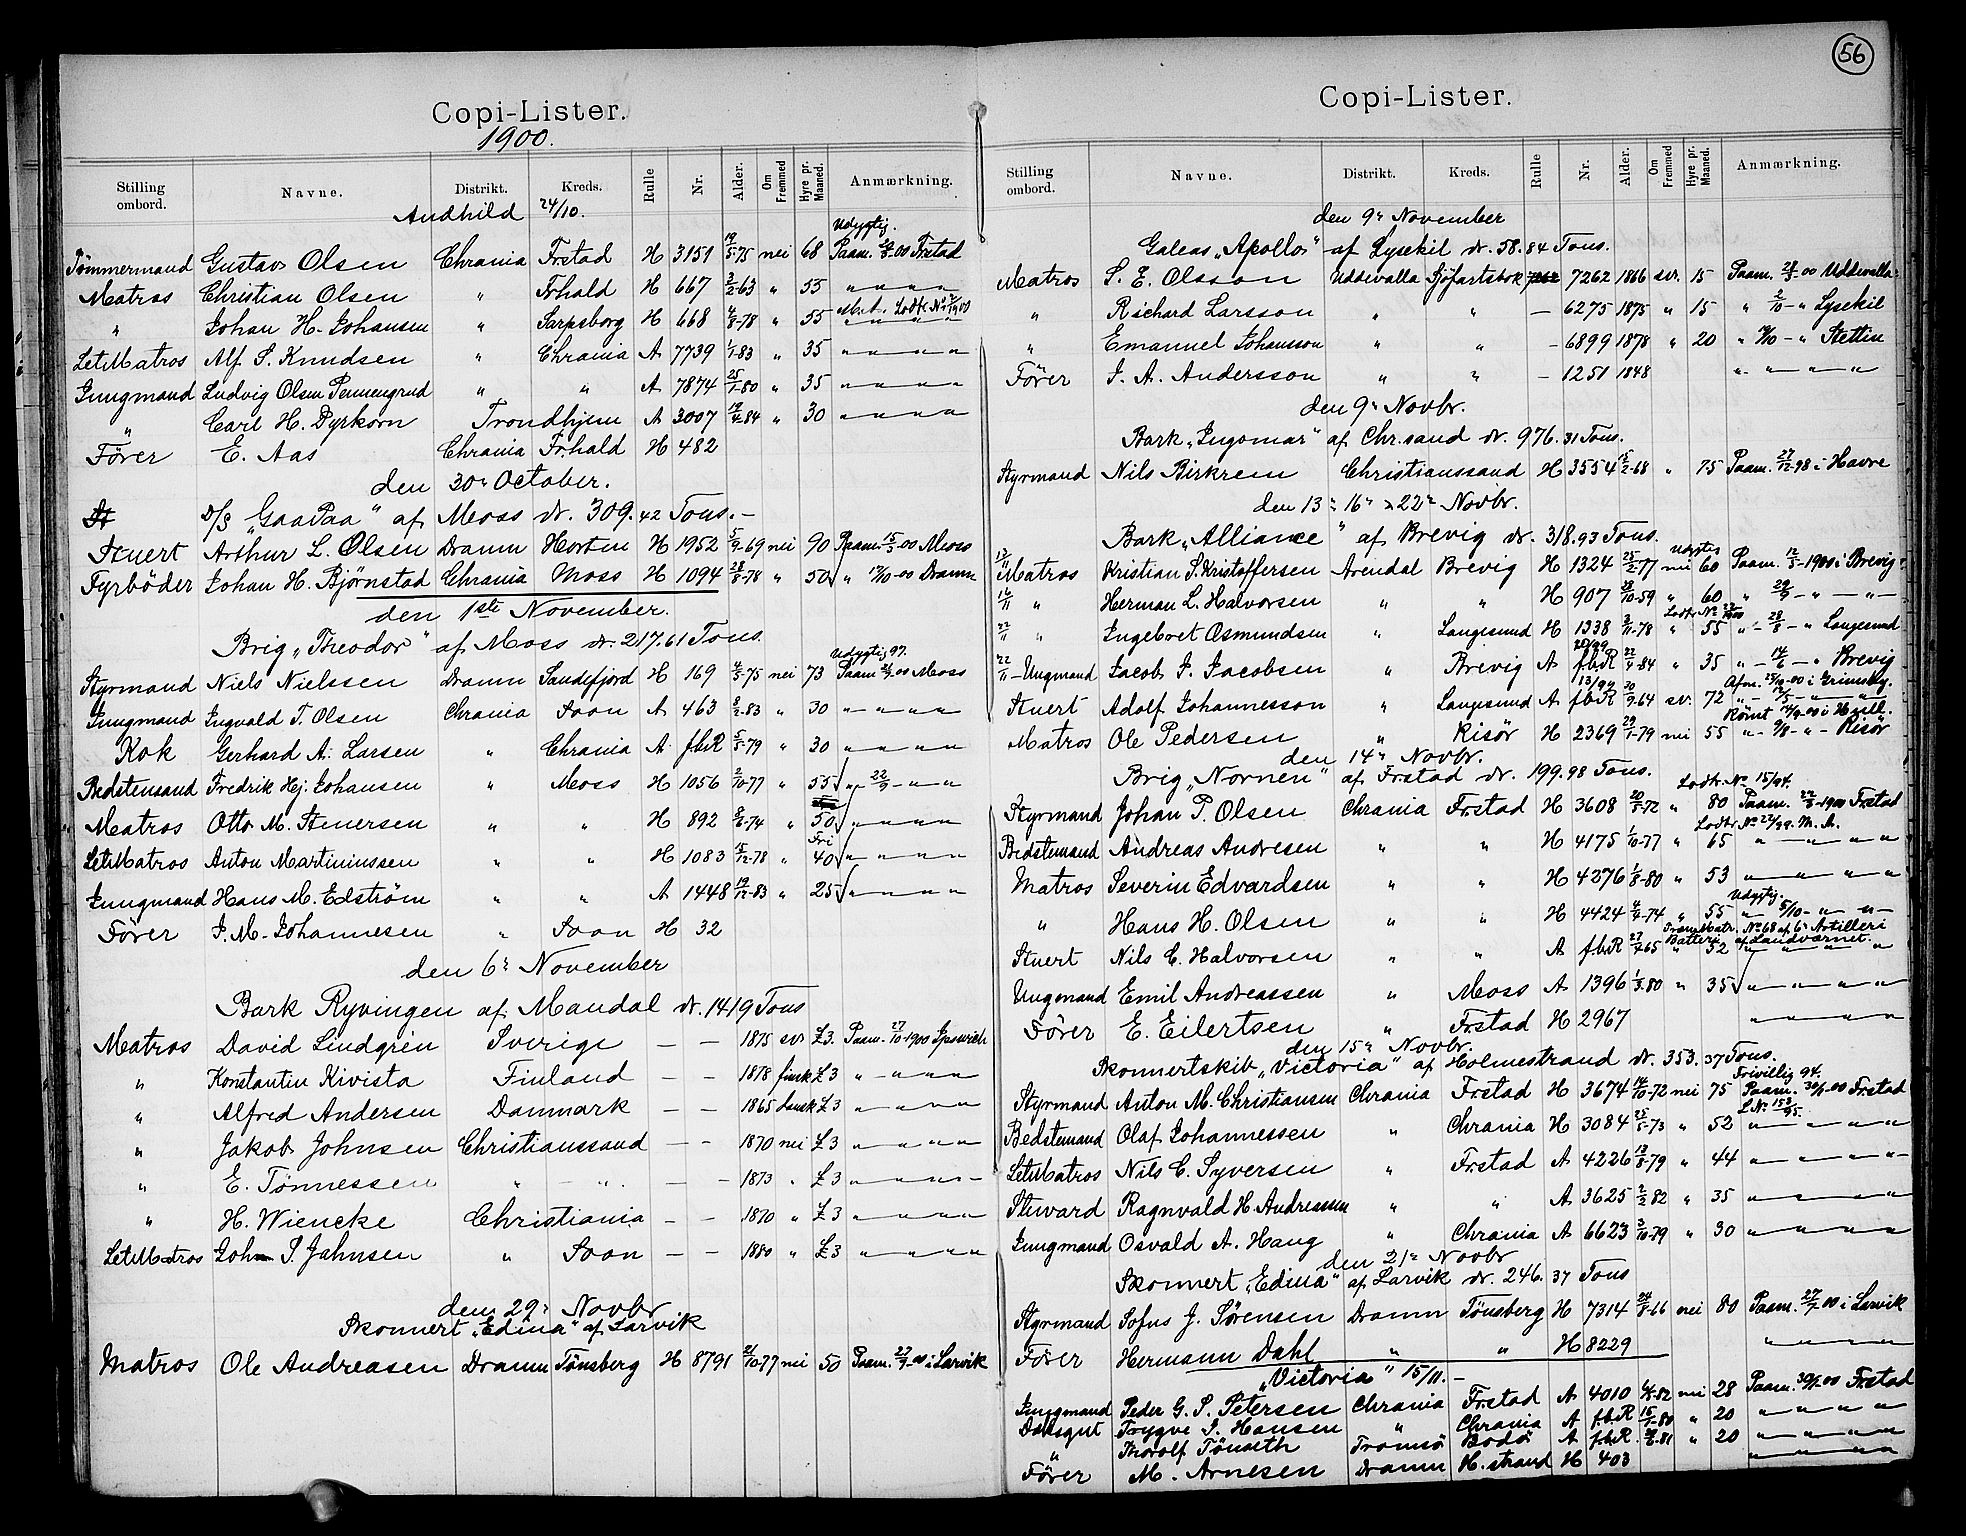 56
Copi-Lister.
1900.
Stilling ombord. Navne. Distrikt. Kreds. Rulle Nr. Alder. Om Fremmed Hyre pr. Maaned. Anmærkning.
Audhild 24/10.
Udygtig.
Tömmermand Gustav Olsen Chrania Frstad H 3151 19/5-75 nei 68 Paam. 00 Frstad
Matros Christian Olsen " Frhald H 667 2/2-63 " 55 " " " "
" Johan H. Johansen " Sarpsborg H 668 4/8-78 " 55 " " " "
LetMatros Alf S. Knudsen " Chrania A 7739 1/1-83 " 35 " " " "
Jungmand Ludvig Olsen " " A 7874 25/1-80 " 35 " " " "
" Carl H. Dyrkorn Trondhjem A 3007 19/4-84 " 30 " " " "
Förer E. Aas Chrania Frhald H 482
den 30te October.
St D/S "GaaPaa" af Moss dr. 309.42 Tons.-
Stuert Arthur L. Olsen Dramn Horten H 1952 5/9-69 nei 90 Paam. 15/5-00 Moss
Fyrböder Johan H. Bjørnstad Chrania Moss H 1094 28/8-78 " 50 " 17/10-00 Dramn
den 1ste November.
Brig "Theodor" af Moss dr. 217.61 Tons.
Udygtig 97.
Styrmand Niels Nielssen Dramn Sandefjord H 169 4/5-75 nei 73 Paam 00 Moss
Jungmand Ingvald T. Olsen Chrania Soon A 463 8/2-83 " 30 " " " "
Kok Gerhard A. Larsen " Chrania A f.b.R 5/5-79 " 30 " " " "
Bedstemand Fredrik Hj. Johansen " Moss H 1056 2/10-77 " 55 " 22/9 - " "
Matros Otto M. Stenersen " " H 892 9/6-74 " 50 " " " "
Fri
LetMatros Anton Martiniussen " " H 1083 15/12-78 " 40 " " " "
Jungmand Hans M. Edström " " A 1448 19/12-83 " 25 " " " "
Förer J. M. Johannesen " Soon H 32
den 6te November
Bark Ryvingen af Mandal dr. 1419 Tons
Matros David Lindgrén Sverige - - 1875 sv £3. Paam. 27/10-1900 Ipswich
" Konstantin Kivista Finland - - 1878 finsk £3 " " " "
" Alfred Andersen Danmark - - 1865 dansk £3 " " " "
" Jakob Johnsen Christianssand - - 1870 nei £3 " " " "
" E. Tönnessen " - " - - 1873 " £3 " " " "
" H. Wiencke Christiania - - 1870 " £3 " " " "
LetMatros John P. Jahnsen " Soon - - 1880 " £3 " " " "
den 29te Novbr
Skonnert "Edina" af Larvik
Matros Ole Andreasen Dramn Tönsberg H 8791 21/10-77 nei 50 Paam. 27/9-00 i Larvik
Copi-Lister.
Stilling ombord. Navne. Distrikt. Kreds. Rulle Nr. Alder. Om Fremmed Hyre pr. Maaned. Anmærkning.
den 9de November
Galeas "Apollos" af Lysekil dr. 58.84 Tons.
Matros S. E. Olsson Uddevalla Sjöfartsbok 7262 7262 1866 sv. 15 Paam. 28/5-00 Uddevalla
" Richard Larsson " " - 6275 1875 " 15 " 2/10 - " Lysekil
" Emanuel Johansson " " - 6899 1878 " 20 " - " Stettin
Förer J. A. Andersson " " - 1251 1848 " " " "
den 9de Novbr.
Bark "Ingomar" af Chr.sand dr. 976.31 Tons.
Styrmand Nils Birkrem Christianssand H 3554 15/2-68 " 75 Paam. 27/12-98 i Havre
den 13de 16de & 22de Novbr.
Bark "Alliance" af Brevig dr. 318.93 Tons.
Udygtig
13/11 Matros Kristian S. Kristoffersen Arendal Brevig H 1324 25/2-77 nei 60 Paam. 12/5-1900 i Brevig
16/11 " Herman L. Halvorsen " " H 907 28/10-59 " 60 " 29/9 - " - " -
22/11 " Ingebret Osmundsen " Langesund H 1338 3/11-78 " 55 " 28/8 - " Langesund
22/11 - Ungmand Jacob J. Jacobsen " Brevig A f.b.R 22/9-84 " 35 " - 14/6 - " Brevig
Afm. 25/10-00 i Grimsby.
Stuert Adolf Johannesson " Langesund A f.b.R 30/9-64 sv. 72 " 12/5 - " - "
Römt 14/9-00 i Hull.
Matros Ole Pedersen " Risör H 2369 29/1-79 nei 55 " - 9/8 - " - Risör
den 14de Novbr.
Brig "Nornen" af Frstad dr. 199.98 Tons.
Lodtr. No 15/94.
Styrmand Johan P. Olsen Chrania Frstad H 3608 20/5-72 " 80 Paam. 22/5-1900 Frstad
Lodtr No 22/99. M. A.
Bedstemand Andreas Andresen " " H 4175 1/10-77 " 65 " " " "
Matros Severin Edvardsen " " H 4276 1/8-80 " 53 " " " "
Udygtig.
" Hans H. Olsen " " H 4424 4/9-74 " 55 " 5/10 - " " -
No 68 af 6te Artilleri Batteri af Landværnet.
Stuert Nils C. Halvorsen " " A f.b.R 27/4-65 " 52 " " " "
Ungmand Emil Andreassen " Moss A 1396 1/3-80 " 35 " " " "
Förer E. Eilertsen " Frstad H 2967 " " " "
den 15de Novbr.
Skonnertskib "Victoria" af Holmestrand dr. 353.37 Tons.
Frivillig 94.
Styrmand Anton M. Christiansen Chrania Frstad H 3674 16/10-72 nei 75 Paam. 00 Frstad
Bedstemand Olaf Johannessen " Chrania H 3084 25/5-73 " 52 " " " "
LetMatros Nils C. Syversen " Frstad A 4226 13/8-79 " 44 " " " "
Stuvard Ragnvald H. Andreassen " " A 3625 2/2-82 " 35 " " " "
Jungmand Osvald A. Haug " Chrania A 6623 3/10-79 " 30 " " " "
den 21de Novbr
Skonnert "Edina" af Larvik dr. 246.37 Tons
Styrmand Sofus J. Sörensen Dramn Tönsberg H 7314 24/8-66 nei 80 Paam. 27/7-00 i Larvik
Förer Hermann Dahl " " H 8229 " " " "
"Victoria" 15/11.-
Jungmand Peder G. P. Petersen Chrania Frstad A 4010 82 nei 28 Paam. 00 Frstad
Dæksgut Trygve S. Hansen " Chrania A f.b.R. 15/1-80 " 20 " " " "
" Thorolf Tömseth Tromsö Bodö A f.b.R. 81 " 20 " " " "
Förer M. Arnesen Dramn H.strand H 403 " " " "